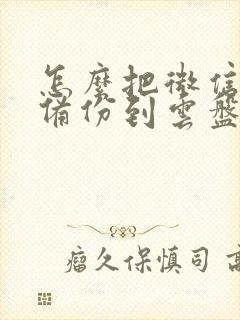 怎麼把微信
備份到雲盤
瘤久保慎司